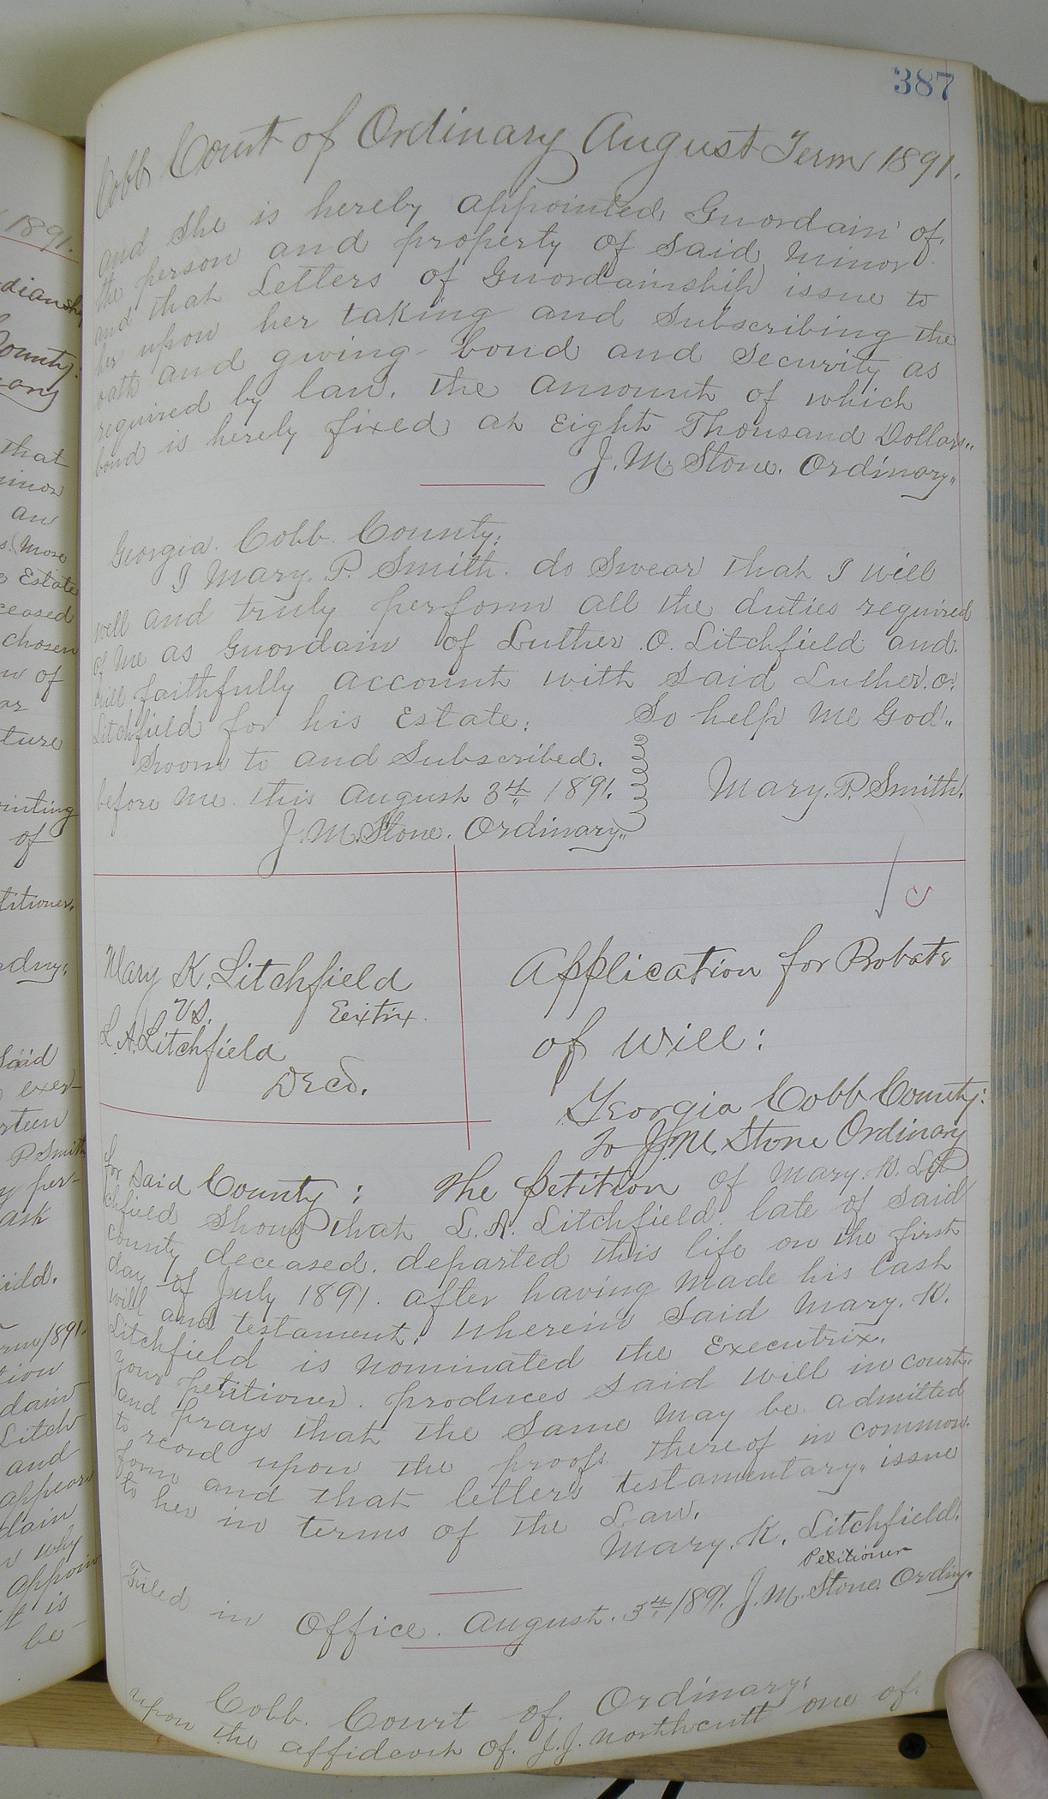 387
Cobb Court of Ordinary August Term 1891.
and she is hereby appointed Guordain of
the person and property of said minor
and that Letters of Guordainship issue to
her upon her taking and subscribing the
oath and giving bond and security as
required by law. the amount of which
bond is hereby fixed at Eight Thousand Dollars..
J. M. Stone. Ordinary..
Georgia. Cobb. County:
I Mary. P. Smith. do swear that I will
well and truly perform all the duties required
of me as Guordain of Luther. O. Litchfield and
will faithfully account with said Luther. O.
Litchfield for his Estate: So help me God..
Sworn to and subscribed.
before me this August 3th 1891. Mary. P. Smith.
J. M. Stone. Ordinary..
Mary K. Litchfield
Eextrx.
vs.
L. A. Litchfield
Decd.
Application for Probate
of Will:
Georgia Cobb County:
To J. M. Stone Ordinary
for said County: The petition of Mary. K. Lit
chfield shows that L. A. Litchfield. late of said
county deceased. departed this life on the first
day of July 1891. after having made his last
will and testament. wherein said Mary. K.
Litchfield is nominated the Executrix.
your petitioner. produces said will in court.
and prays that the same may be admitted
to record upon the proofs thereof in common
form and that letters testamentary. issue
to her in terms of the Law.
Mary. K. Litchfield.
Petitioner
Filed in Office. August. 3th 1891. J. M. Stone. Ordiny.
Cobb. Court of. Ordinary:
upon the affidavit of. J. J. Northcutt one of.
1891.
County:
that
an
More
Estate
ceased
chosen
of
ture
ointing
of
titioner.
said
exer-
P. Smith
per-
ask
1891.
tion
dain
Litch
and
appears
dain
why
appoin
it is
be